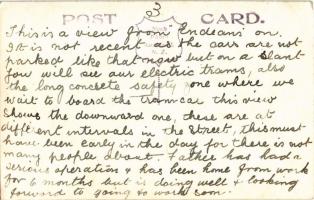 3
POST CARD.
This is a view from "Endeans" on.
It is not recent as the cars are not
parked like that now but on a slant
You will see our electric trams, also
the long concrete safety zone where we
wait to board the tramcar this view
shows the downward one, these are at
different intervals in the Street, this must
have been early in the day for there is not
many people about. Father has had a
serious operation & has been home from work
for 6 months but is doing well & looking
forward to going to work soon.